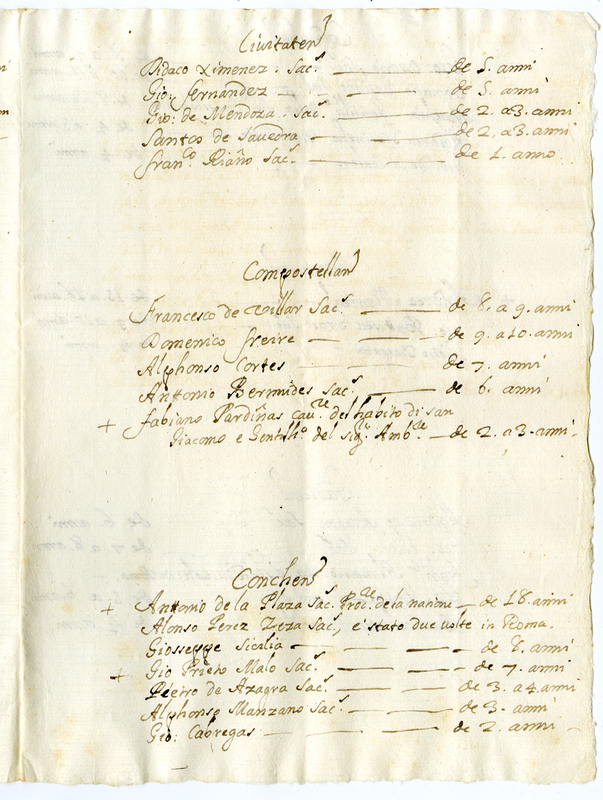 Civitaten
Didaco Ximenez. Sac.s — de 5. anni
Gio: fernandez — de 5. anni
Gio: de Mendoza. Sac.s — de 2. a 3. anni
Santos de Saavedra — de 2. a 3. anni
fran.co Riaño Sac.s — de 1. anno
Compostellan
Francesco de Villar Sac.s — de 8. a 9. anni
Domenico freire — de 9. a 10. anni
Alphonso Cortes — de 7. anni
Antonio Bermudes Sac.s — de 6. anni
+ fabiano Pardiñas Cav.re del habito di san
Giacomo e Gentilh.o del sig.r Amb.re — de 2. a 3. anni
Conchen
+ Antonio de la Plaza Sac.s Proc.re de la natione — de 18. anni
Alonso Perez Zeza Sac.s, e stato due volte in Roma.
Gioseppe Sicilia — de 8. anni
+ Gio Prieto Malo Sac.s — de 7. anni
Pietro de Azagra Sac.s — de 3. a 4 anni
Alphonso Manzano Sac.s — de 3. anni
Gio: Cabregas — de 2. anni